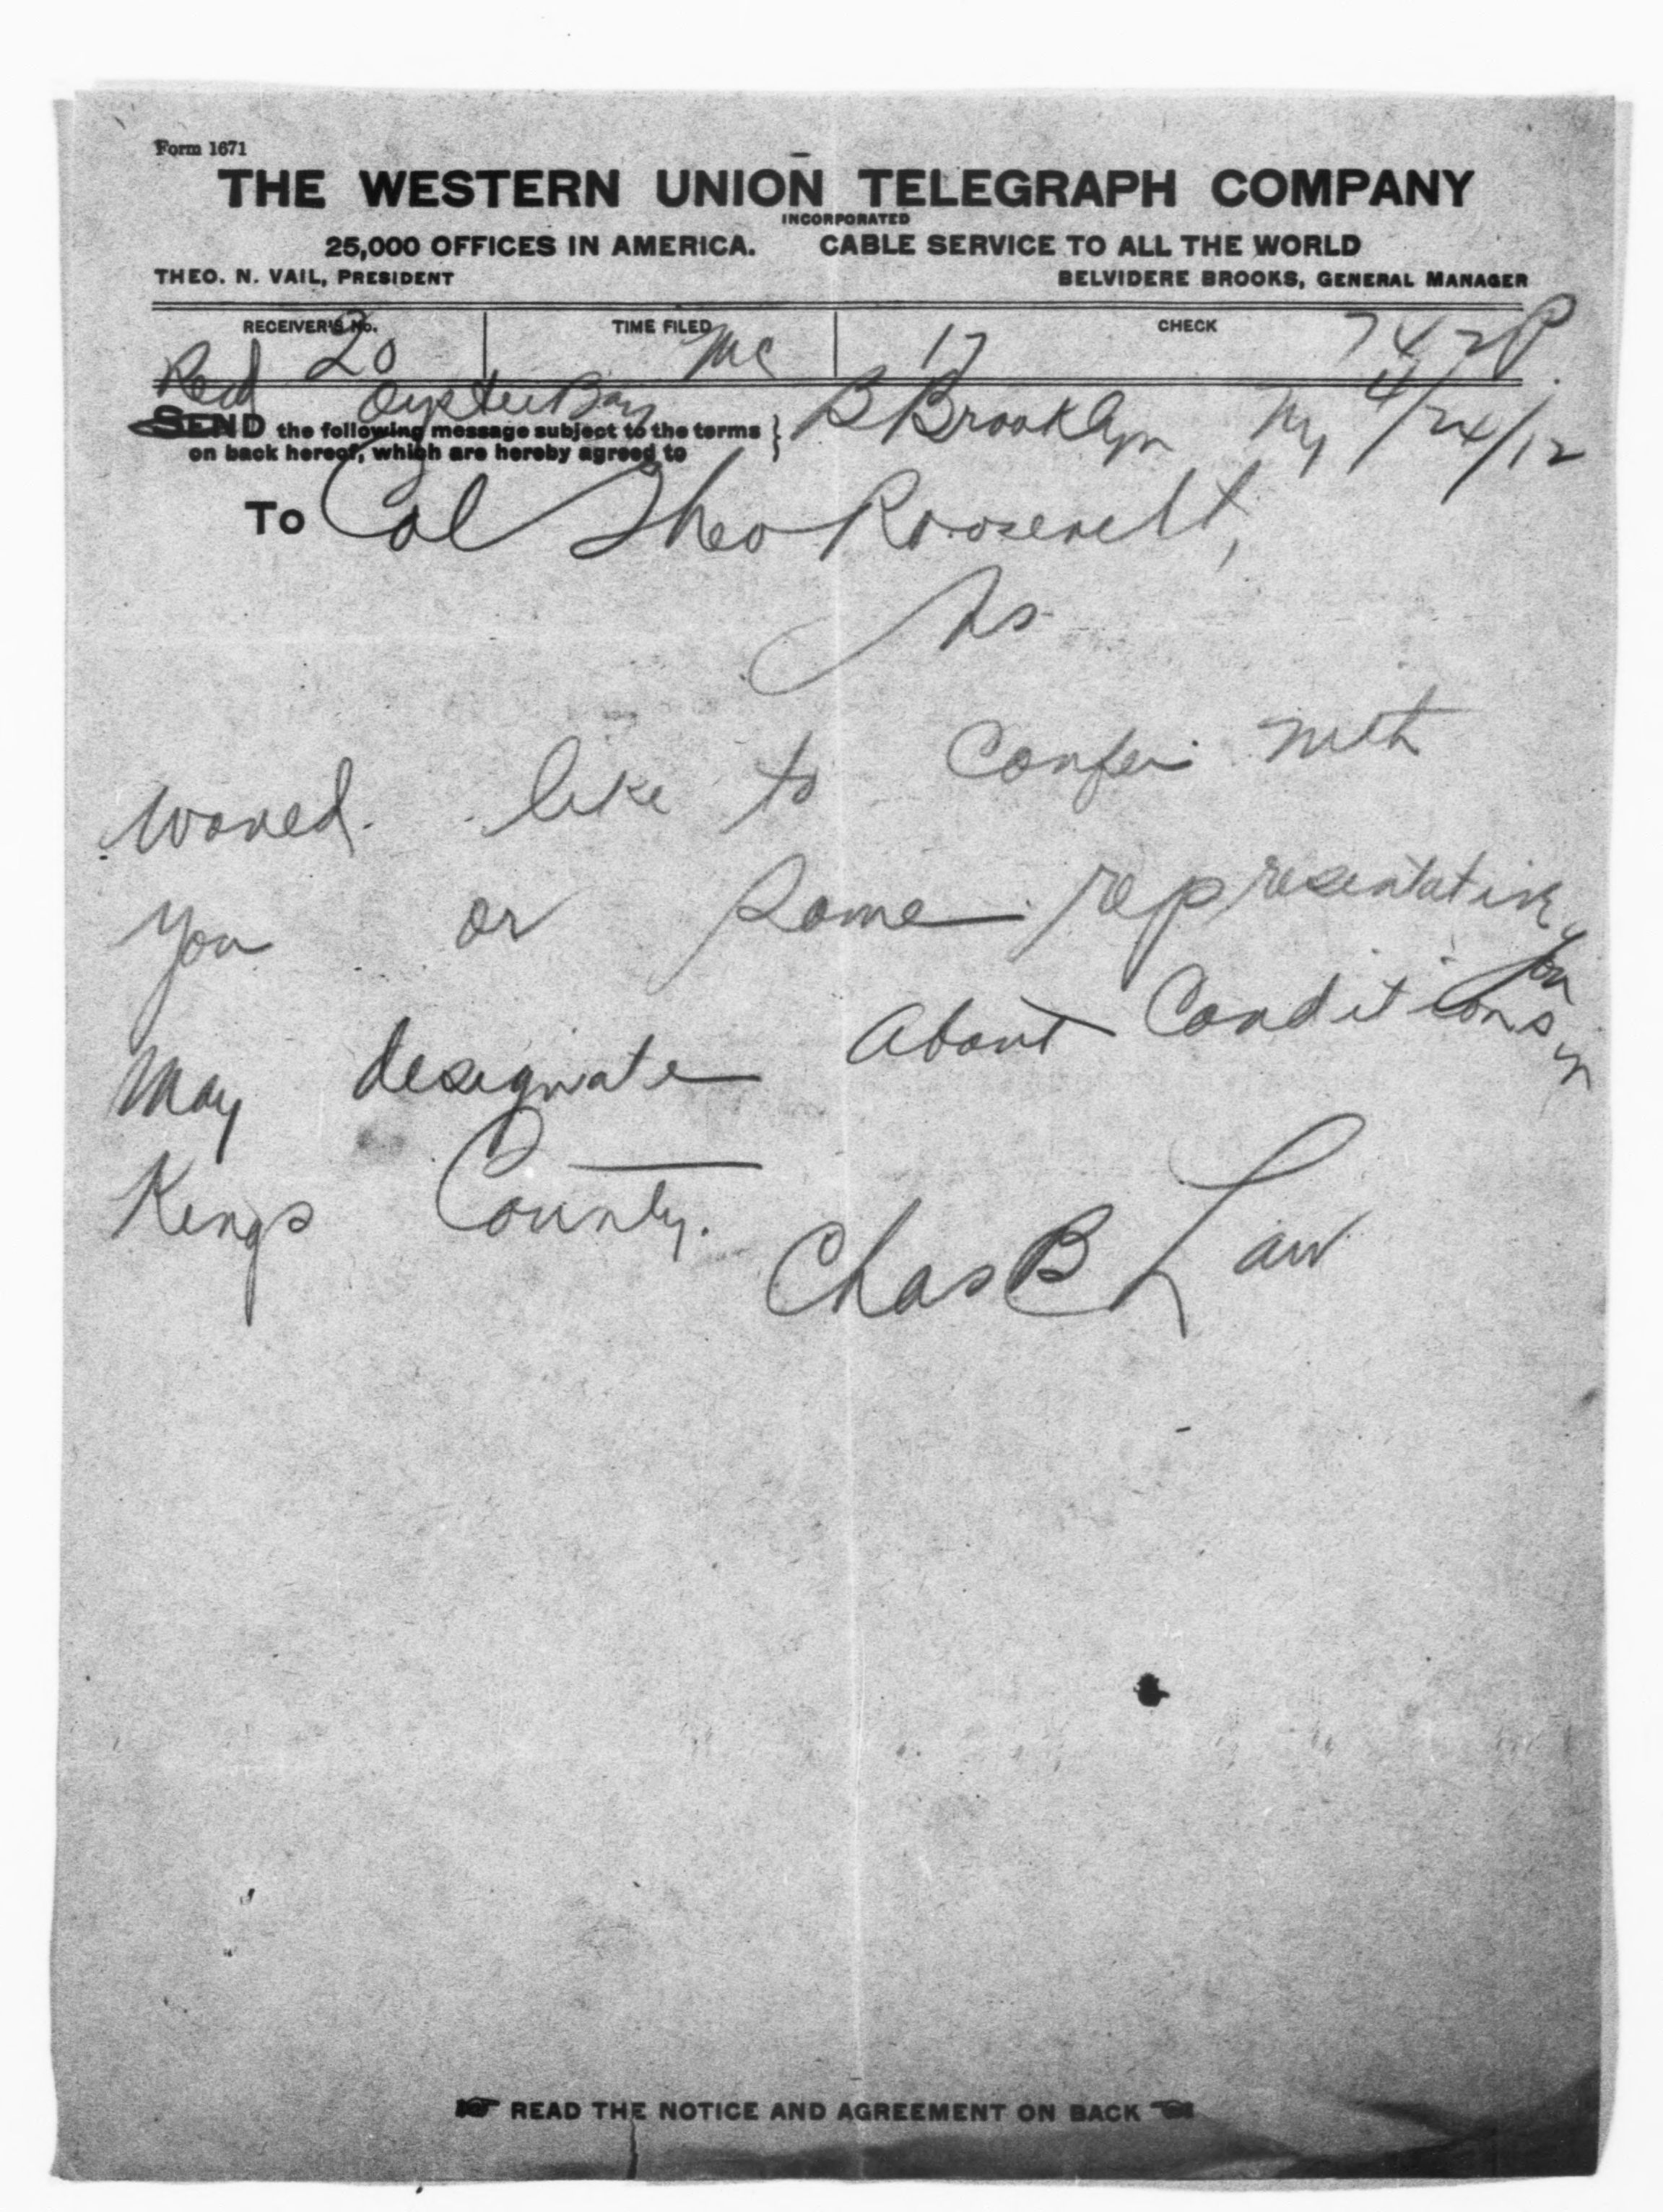 Form 1671
THE WESTERN UNION TELEGRAPH COMPANY
INCORPORATED
25,000 OFFICES IN AMERICA. CABLE SERVICE TO ALL THE WORLD
THEO. N. VAIL, PRESIDENT BELVIDERE BROOKS, GENERAL MANAGER
RECEIVER'S No. TIME FILED CHECK
20 17 742P
Oyster Bay B Brooklyn Ny 4/24/12
SEND the following message subject to the terms
on back hereof, which are hereby agreed to
To Col Theo Roosevelt,
would like to Confer with
you or some representative you
may designate about Conditions in
Kings County.
Chas B Law
READ THE NOTICE AND AGREEMENT ON BACK